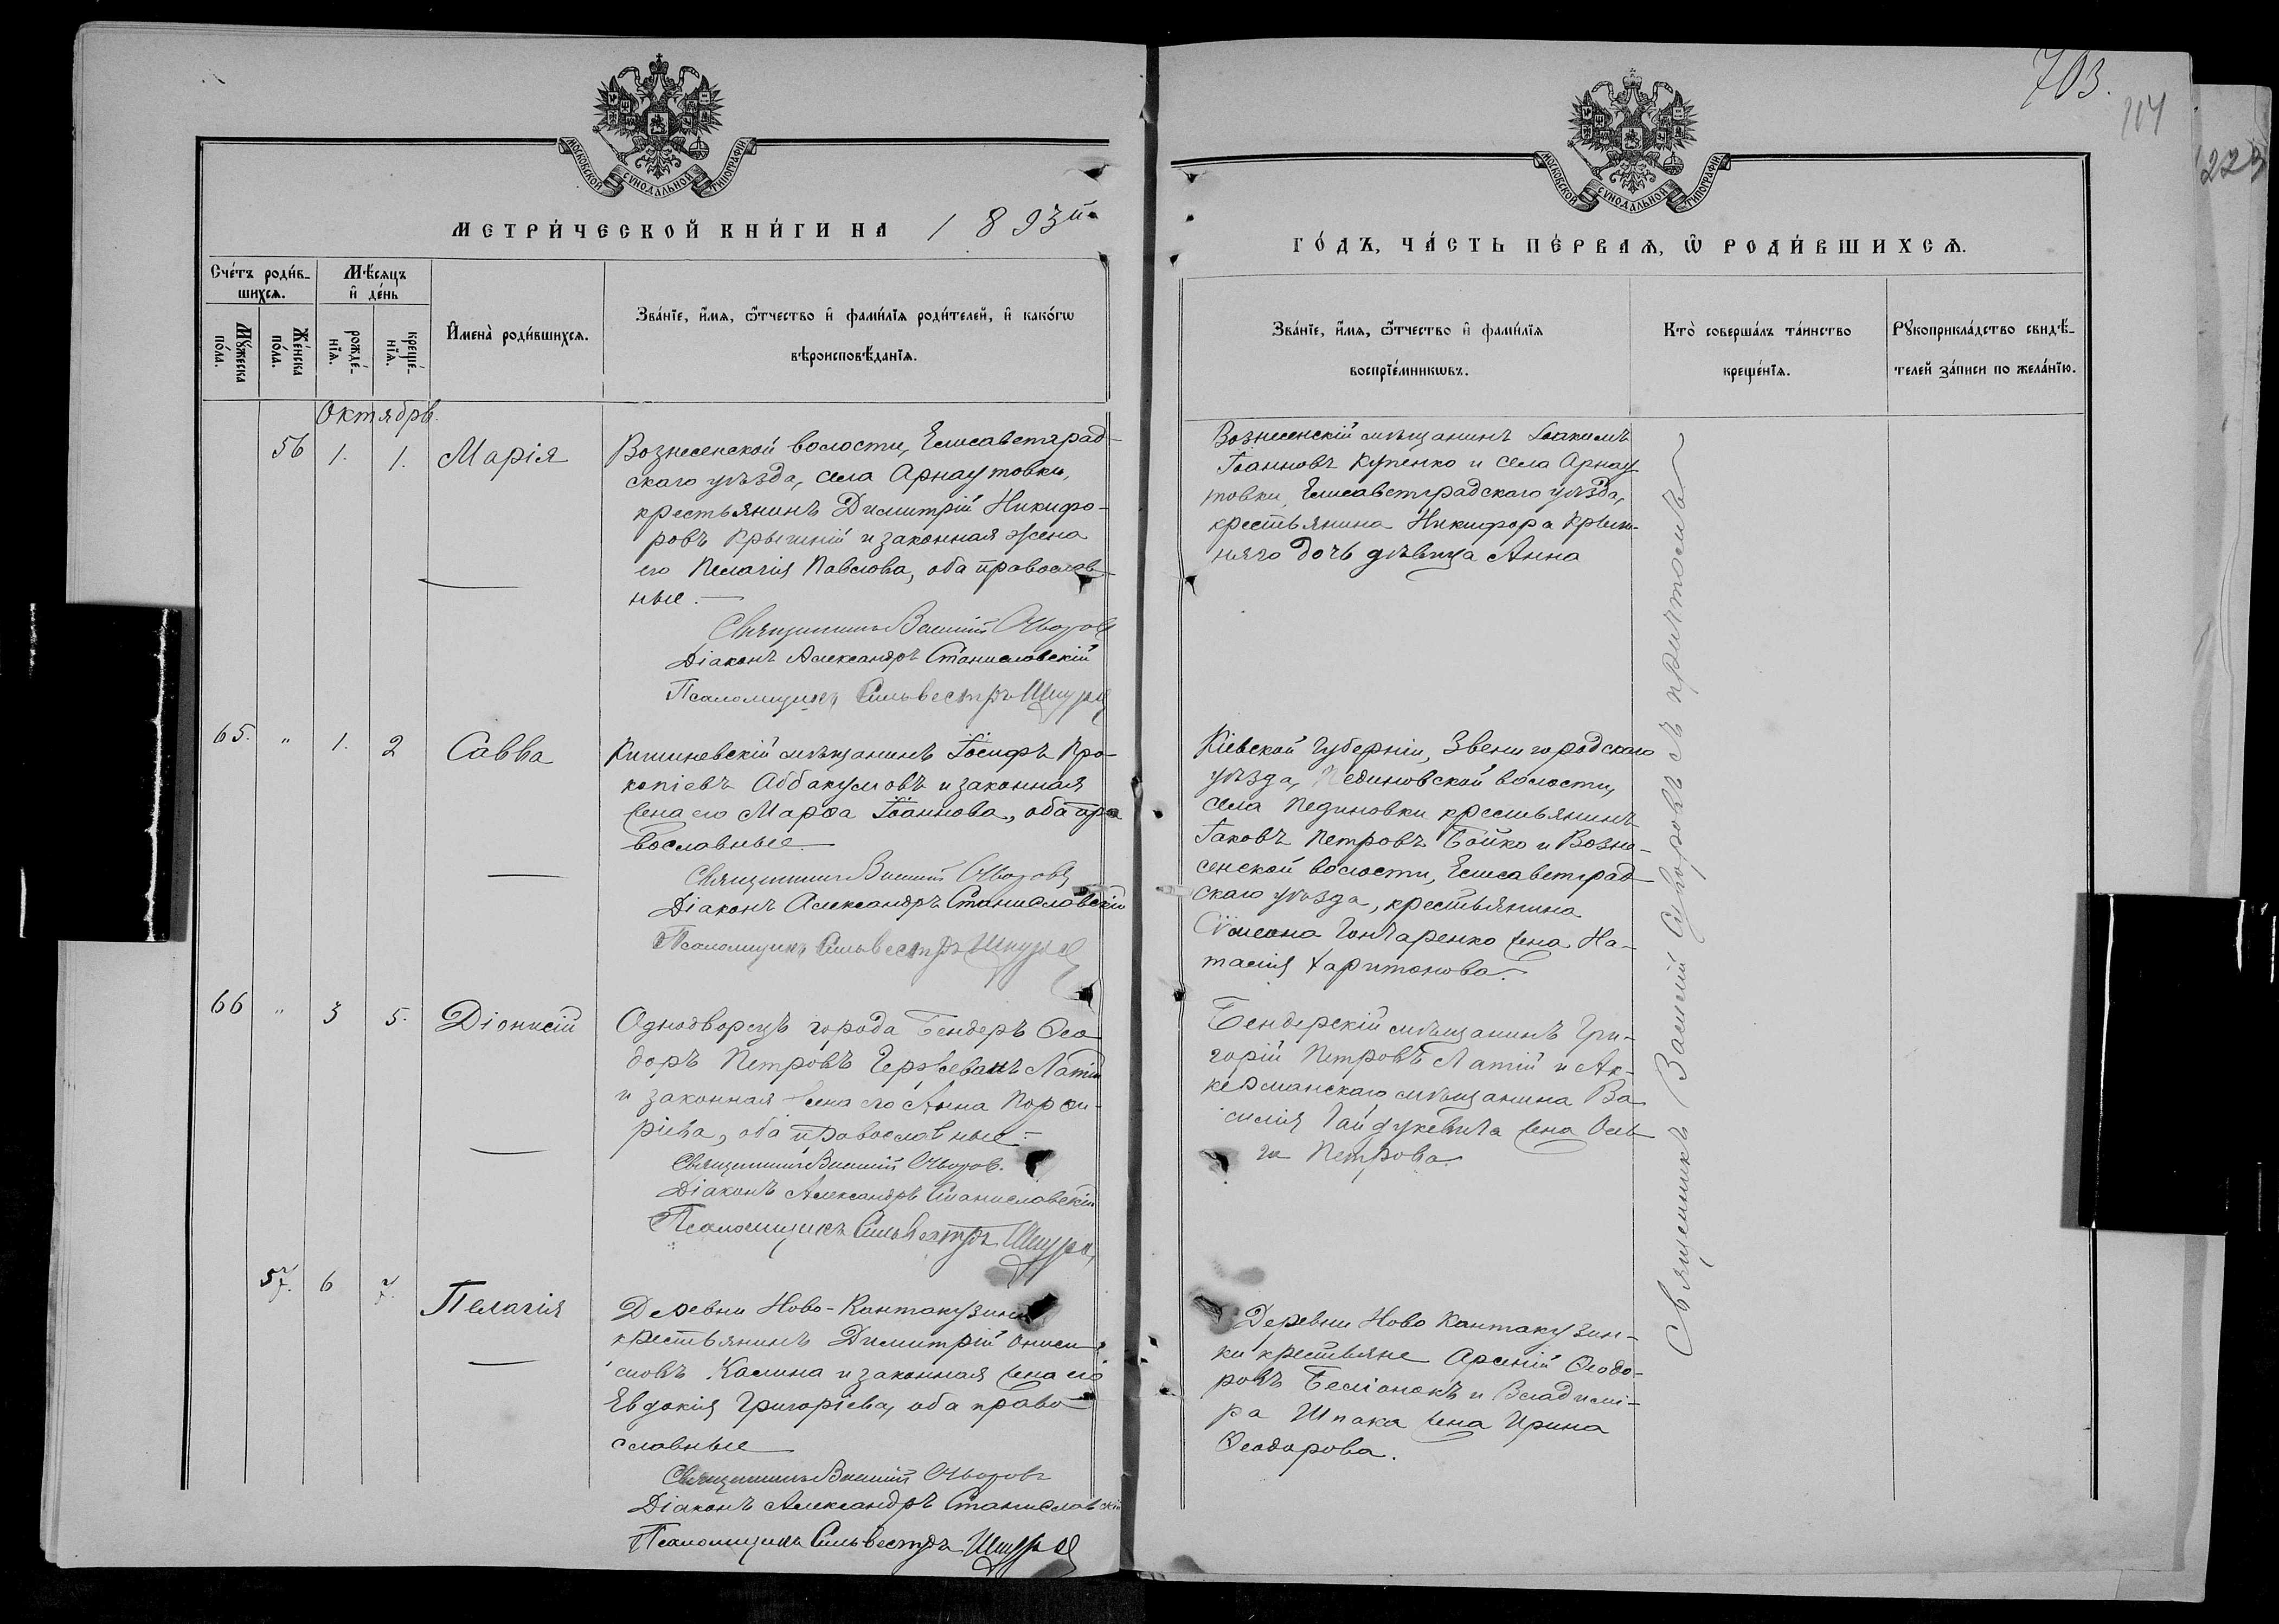 703.
114
223
МОСКОВСКОЙ СУНОДАЛЬНОЙ ТИПОГРАФІИ
МОСКОВСКОЙ СУНОДАЛЬНОЙ ТИПОГРАФІИ
МЕТРИ́ЧЕСКОЙ КНИ́ГИ НА 1893й
ГО́ДЪ, ЧА́СТЬ ПЕ́РВАѦ, Ѡ҆ РОДИ́ВШИХСѦ.
Сче́тъ роди́в-
шихсѧ.
Мѣ́сѧцъ
и҆ де́нь
Мꙋ́жеска
по́ла.
Же́нска
по́ла.
рожде́-
нїѧ.
креще́-
нїѧ.
И҆мена̀ роди́вшихсѧ.
Зва́нїе, и҆́мѧ, ѻ҆́тчество и҆ фами́лїѧ роди́телей, и҆ како́гѡ
вѣроисповѣ́данїѧ.
Зва́нїе, и҆́мѧ, ѻ҆́тчество и҆ фами́лїѧ
воспрїе́мникѡвъ.
Кто̀ соверша́лъ та́инство
креще́нїѧ.
Рꙋкоприкла́дство свидѣ́-
телей за́писи по жела́нїю.
Октябрь.
56 1. 1. Марія
Вознесенской волости, Елисаветград-
скаго уѣзда, села Арнаутовки,
крестьянинъ Димитрій Никифо-
ровъ Крычній и законная жена
его Пелагія Павлова, оба православ-
ные.
Священникъ Василій Суворовъ
Діаконъ Александръ Станиславскій
Псаломщикъ Сильвестръ
Вознесенскій мѣщанинъ Іоакимъ
Іоанновъ Купенко и села Арнау-
товки, Елисаветградскаго уѣзда,
крестьянина Никифора
дочь дѣвица Анна
65. " 1. 2 Савва
Кишиневскій мѣщанинъ Іосифъ Про-
копіевъ Аббакумовъ и законная
жена его Марѳа Іоаннова, оба пра
вославные.
Священникъ Василій Суворовъ
Діаконъ Александръ Станиславскій
Псаломщикъ Сильвестръ
Кіевской губерніи, Звенигородскаго
уѣзда, Пединовской волости,
села Пединовки крестьянинъ
Іаковъ Петровъ Бойко и Возне-
сенской волости, Елисаветград-
скаго уѣзда, крестьянина
Сѵмеона Гончаренко жена На-
талія Харитонова.
66 " 3 5. Діонисій
Однодворецъ города Бендеръ Ѳео-
доръ Петровъ Гержеванъ Латій
и законная жена его Анна Порфи-
ріева, оба православные.
Священникъ Василій Суворов.
Діаконъ Александръ Станиславскій
Псаломщикъ Сильвестръ
Бендерскій мѣщанинъ Гри-
горій Петровъ Латій и Ак-
керманскаго мѣщанина Ва
силія Гайдукевича жена Оль
га Петрова.
57. 6 7. Пелагія
Деревни Ново-Кантакузинки
крестьянинъ Димитрій Ониси-
мовъ Калина и законная жена его
Евдокія Григоріева, оба право-
славные
Священникъ Василій Суворовъ
Діаконъ Александръ Станиславскій
Псаломщикъ Сильвестръ
Деревни Ново Кантакузин-
ки крестьяне Арсеній Ѳеодо-
ровъ и Владимі-
ра Шпака жена Ирина
Ѳеодорова.
Священникъ Василій Суворовъ съ причтомъ